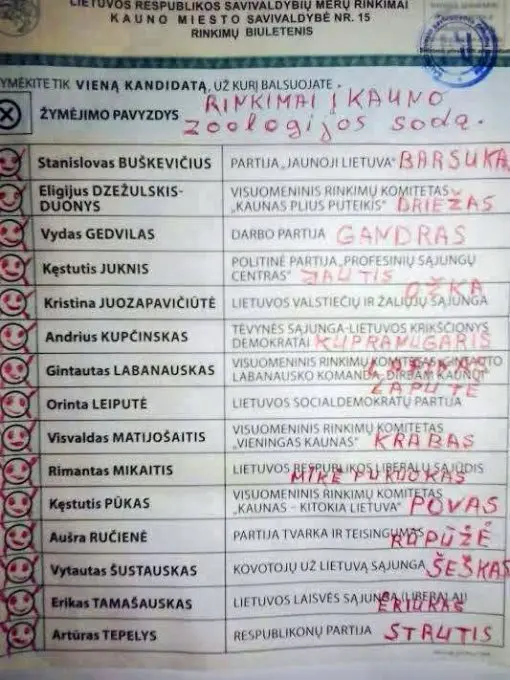 LIETUVOS RESPUBLIKOS SAVIVALDYBIŲ MERŲ RINKIMAI
KAUNO MIESTO SAVIVALDYBĖ NR. 15
RINKIMŲ BIULETENIS
ŽYMĖKITE TIK VIENĄ KANDIDATĄ, UŽ KURĮ BALSUOJATE.
ŽYMĖJIMO PAVYZDYS RINKIMAI Į KAUNO
zoologijos sodą.
Stanislovas BUŠKEVIČIUS PARTIJA „JAUNOJI LIETUVA“ BARSUKA
Eligijus DZEŽULSKIS- VISUOMENINIS RINKIMŲ KOMITETAS
DUONYS „KAUNAS PLIUS PUTEIKIS“ DRIEŽAS
Vydas GEDVILAS DARBO PARTIJA GANDRAS
Kęstutis JUKNIS POLITINĖ PARTIJA „PROFESINIŲ SĄJUNGŲ
CENTRAS“ JAUTIS
OŽKA
Kristina JUOZAPAVIČIŪTĖ LIETUVOS VALSTIEČIŲ IR ŽALIŲJŲ SĄJUNGA
Andrius KUPČINSKAS TĖVYNĖS SĄJUNGA-LIETUVOS KRIKŠČIONYS
DEMOKRATAI KUPRANUGARIS
Gintautas LABANAUSKAS VISUOMENINIS RINKIMŲ KOMITETAS GINTAUTO
LABANAUSKO KOMANDA „DIRBAM KAUNUI“
LAPUTĖ
Orinta LEIPUTĖ LIETUVOS SOCIALDEMOKRATŲ PARTIJA
Visvaldas MATIJOŠAITIS VISUOMENINIS RINKIMŲ KOMITETAS
„VIENINGAS KAUNAS“ KRABAS
Rimantas MIKAITIS LIETUVOS RESPUBLIKOS LIBERALŲ SĄJŪDIS
MIKĖ PŪKUOKAS
Kęstutis PŪKAS VISUOMENINIS RINKIMŲ KOMITETAS
„KAUNAS – KITOKIA LIETUVA“ POVAS
Aušra RUČIENĖ PARTIJA TVARKA IR TEISINGUMAS
RUPŪŽĖ
Vytautas ŠUSTAUSKAS KOVOTOJŲ UŽ LIETUVĄ SĄJUNGA ŠEŠKAS
Erikas TAMAŠAUSKAS LIETUVOS LAISVĖS SĄJUNGA (LIBERALAI)
ĖRIUKAS
Artūras TEPELYS RESPUBLIKONŲ PARTIJA STAUTIS